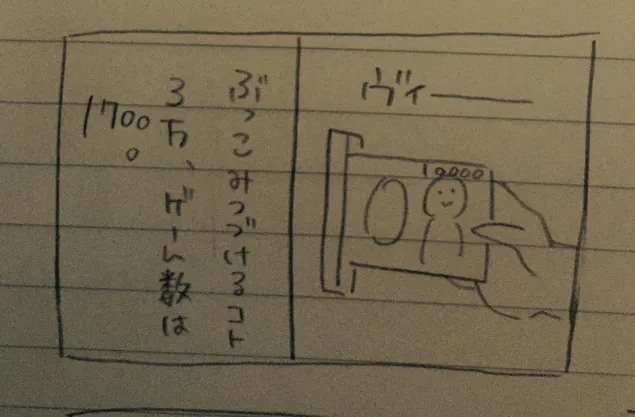 ヴィーーー
10000
ぶっこみつづけるコト
3万、ゲーム数は
1700。